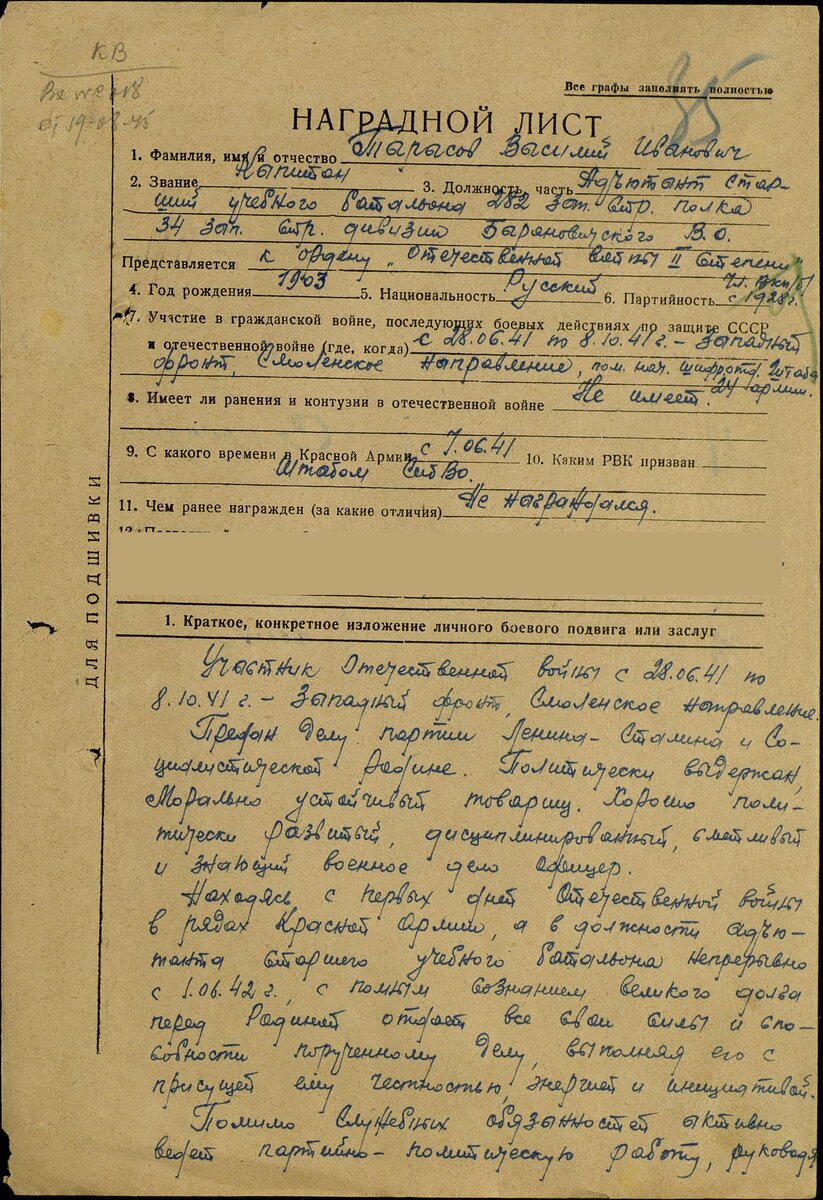 КВ
Вх № 018
от 19-08-45
35
Все графы заполнять полностью
НАГРАДНОЙ ЛИСТ
1. Фамилия, имя и отчество Тарасов Василий Иванович
2. Звание Капитан 3. Должность, часть Адъютант стар-
ший учебного батальона 282 зап. стр. полка
34 зап. стр. дивизии Барановичского В.О.
Представляется к ордену „Отечественной войны II степени"
4. Год рождения 1903 5. Национальность Русский 6. Партийность Чл. ВКП/б/ с 1928 г.
7. Участие в гражданской войне, последующих боевых действиях по защите СССР
и отечественной войне (где, когда) с 28.06.41 по 8.10.41 г. – Западный
фронт, Смоленское направление, пом. нач. шифротд. Штаба
24 армии.
8. Имеет ли ранения и контузии в отечественной войне Не имеет.
9. С какого времени в Красной Армии с 7.06.41 10. Каким РВК призван
Штабом СибВо.
11. Чем ранее награжден (за какие отличия) Не награждался.
ДЛЯ ПОДШИВКИ
1. Краткое, конкретное изложение личного боевого подвига или заслуг
Участник Отечественной войны с 28.06.41 по
8.10.41 г. – Западный фронт, Смоленское направление.
Предан делу партии Ленина – Сталина и Со-
циалистической Родине. Политически выдержан,
Морально устойчивый товарищ. Хорошо поли-
тически развитый, дисциплинированный, сметливый
и знающий военное дело офицер.
Находясь с первых дней Отечественной войны
в рядах Красной Армии, а в должности адъю-
танта старшего учебного батальона непрерывно
с 1.06.42 г., с полным сознанием великого долга
перед Родиной отдает все свои силы и спо-
собности порученному делу, выполняя его с
присущей ему честностью, энергией и инициативой.
Помимо служебных обязанностей активно
ведет партийно – политическую работу, руководя